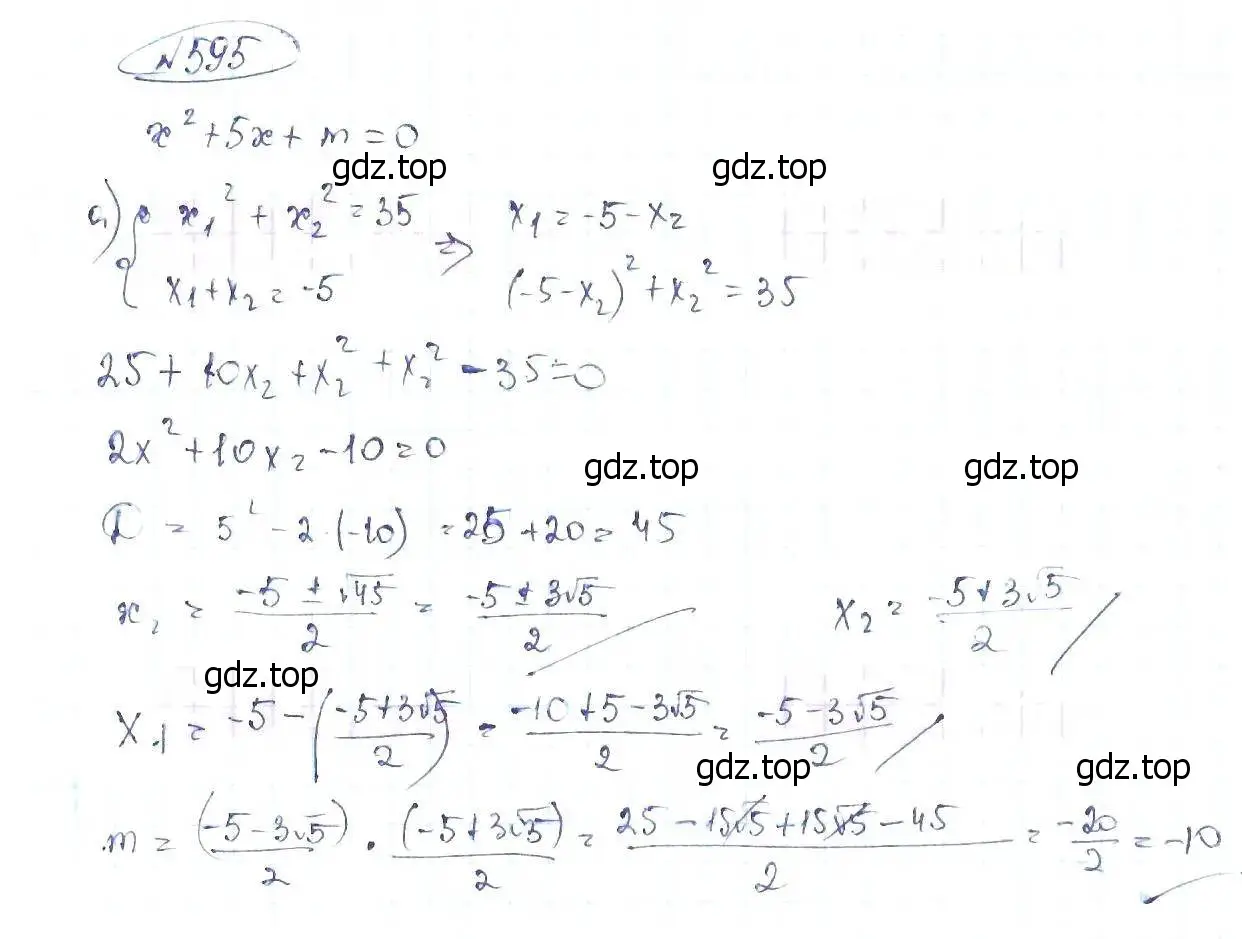 №595
x² + 5x + m = 0
gdz.top gdz.top
а) { x₁² + x₂² = 35 ⇒ x₁ = -5 - x₂
x₁ + x₂ = -5 (-5 - x₂)² + x₂² = 35
25 + 10x₂ + x₂² + x₂² - 35 = 0
2x² + 10x₂ - 10 = 0
gdz.top gdz.top
D = 5² - 2·(-10) = 25 + 20 = 45
x₂ = (-5 ± √45)/2 = (-5 ± 3√5)/2 x₂ = (-5 + 3√5)/2
gdz.top
x₁ = -5 - ((-5 + 3√5)/2) = (-10 + 5 - 3√5)/2 = (-5 - 3√5)/2
gdz.top gdz.top
m = (-5 - 3√5)/2 · (-5 + 3√5)/2 = (25 - 15√5 + 15√5 - 45)/2 = -20/2 = -10